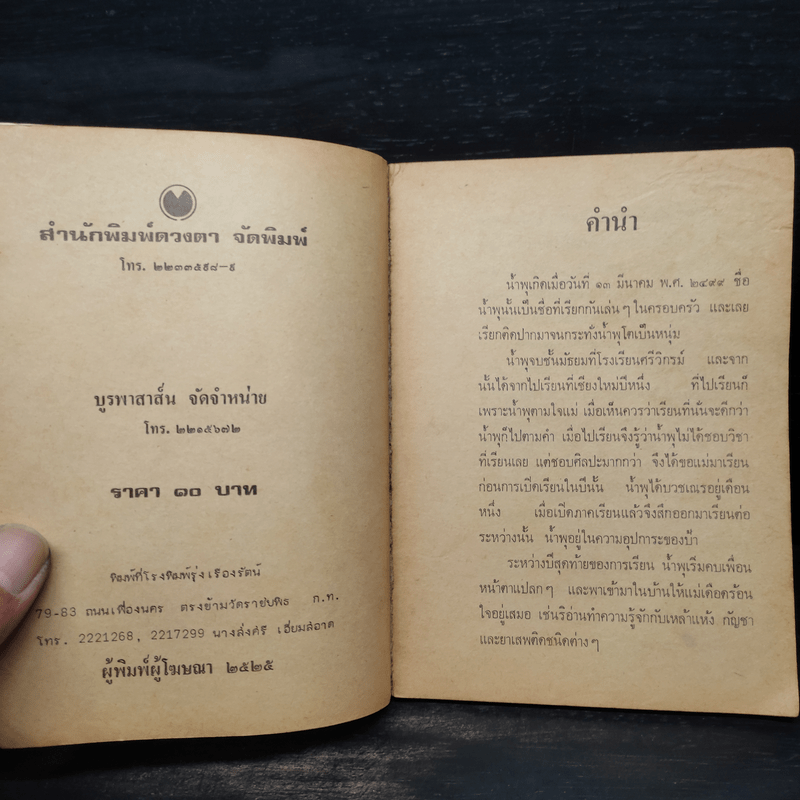 สำนักพิมพ์ดวงตา จัดพิมพ์
โทร. ๒๒๓๓๕๙๘-๙
บูรพาสาส์น จัดจำหน่าย
โทร. ๒๒๑๕๖๗๒
ราคา ๑๐ บาท
พิมพ์ที่โรงพิมพ์รุ่งเรืองรัตน์
79-83 ถนนเฟื่องนคร ตรงข้ามวัดราชบพิธ ก.ท.
โทร. 2221268, 2217299 นางสั่งศรี เอี่ยมสอาด
ผู้พิมพ์ผู้โฆษณา ๒๕๒๕
คำนำ
น้ำพุเกิดเมื่อวันที่ ๑๓ มีนาคม พ.ศ. ๒๔๙๙ ชื่อ
น้ำพุนั้นเป็นชื่อที่เรียกกันเล่นๆในครอบครัว และเลย
เรียกติดปากมาจนกระทั่งน้ำพุโตเป็นหนุ่ม
น้ำพุจบชั้นมัธยมที่โรงเรียนศรีวิกรม์ และจาก
นั้นได้จากไปเรียนที่เชียงใหม่ปีหนึ่ง ที่ไปเรียนก็
เพราะน้ำพุตามใจแม่ เมื่อเห็นควรว่าเรียนที่นั่นจะดีกว่า
น้ำพุก็ไปตามคำ เมื่อไปเรียนจึงรู้ว่าน้ำพุไม่ได้ชอบวิชา
ที่เรียนเลย แต่ชอบศิลปะมากกว่า จึงได้ขอแม่มาเรียน
ก่อนการเปิดเรียนในปีนั้น น้ำพุได้บวชเณรอยู่เดือน
หนึ่ง เมื่อเปิดภาคเรียนแล้วจึงสึกออกมาเรียนต่อ
ระหว่างนั้น น้ำพุอยู่ในความอุปการะของป้า
ระหว่างปีสุดท้ายของการเรียน น้ำพุเริ่มคบเพื่อน
หน้าตาแปลกๆ และพาเข้ามาในบ้านให้แม่เดือดร้อน
ใจอยู่เสมอ เช่นริอ่านทำความรู้จักกับเหล้าแห้ง กัญชา
และยาเสพติดชนิดต่างๆ